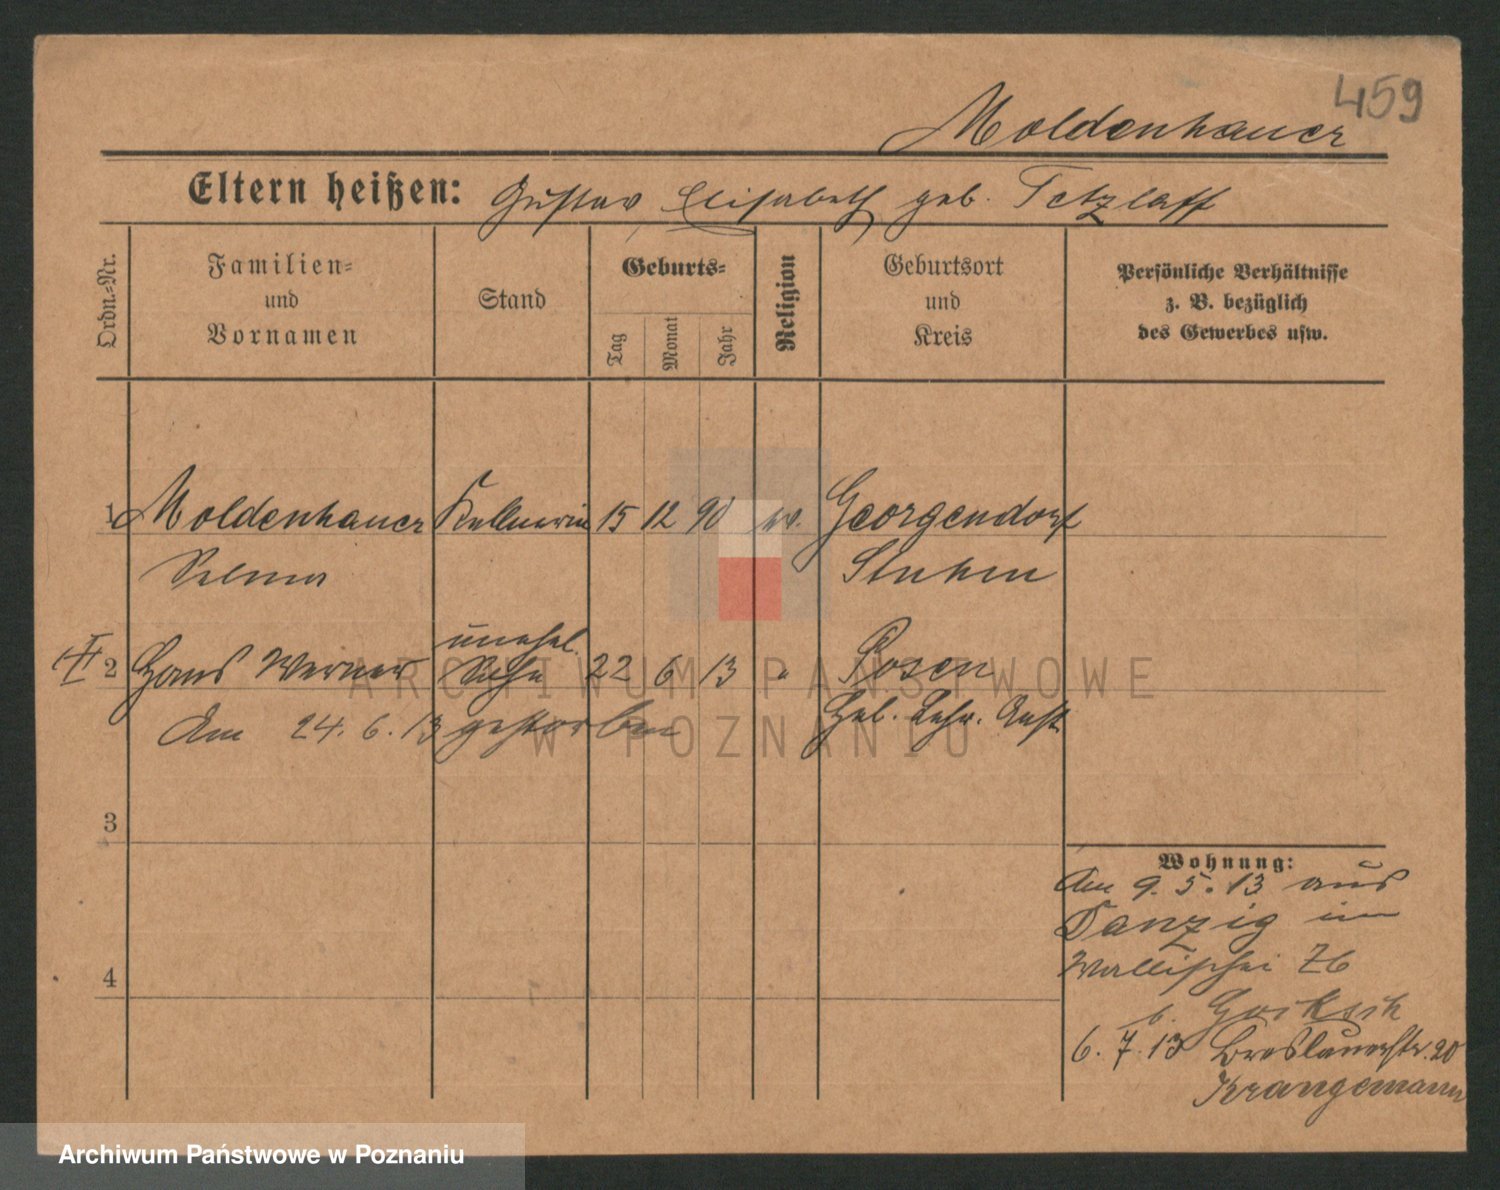 459
Moldenhauer
Eltern heißen: Gustav Elisabeth geb. Tetzlaff
Ordn.-Nr.
Familien-
und
Vornamen
Stand
Geburts-
Tag
Monat
Jahr
Religion
Geburtsort
und
Kreis
Persönliche Verhältnisse
z. B. bezüglich
des Gewerbes usw.
1 Moldenhauer Kellnerin 15 12 90 ev. Georgendorf
Selma Stuhm
unehel.
2 Hans Werner Sohn 22 6 13 " Posen
Am 24. 6. 13 gestorben Heb. Lehr. Anst.
3
4
Wohnung:
Am 9. 5. 13 aus
Danzig in
Wallischei 76
b.
6. 7. 13 Breslauerstr. 20
Krangemann
ARCHIWUM PAŃSTWOWE
W POZNANIU
Archiwum Państwowe w Poznaniu